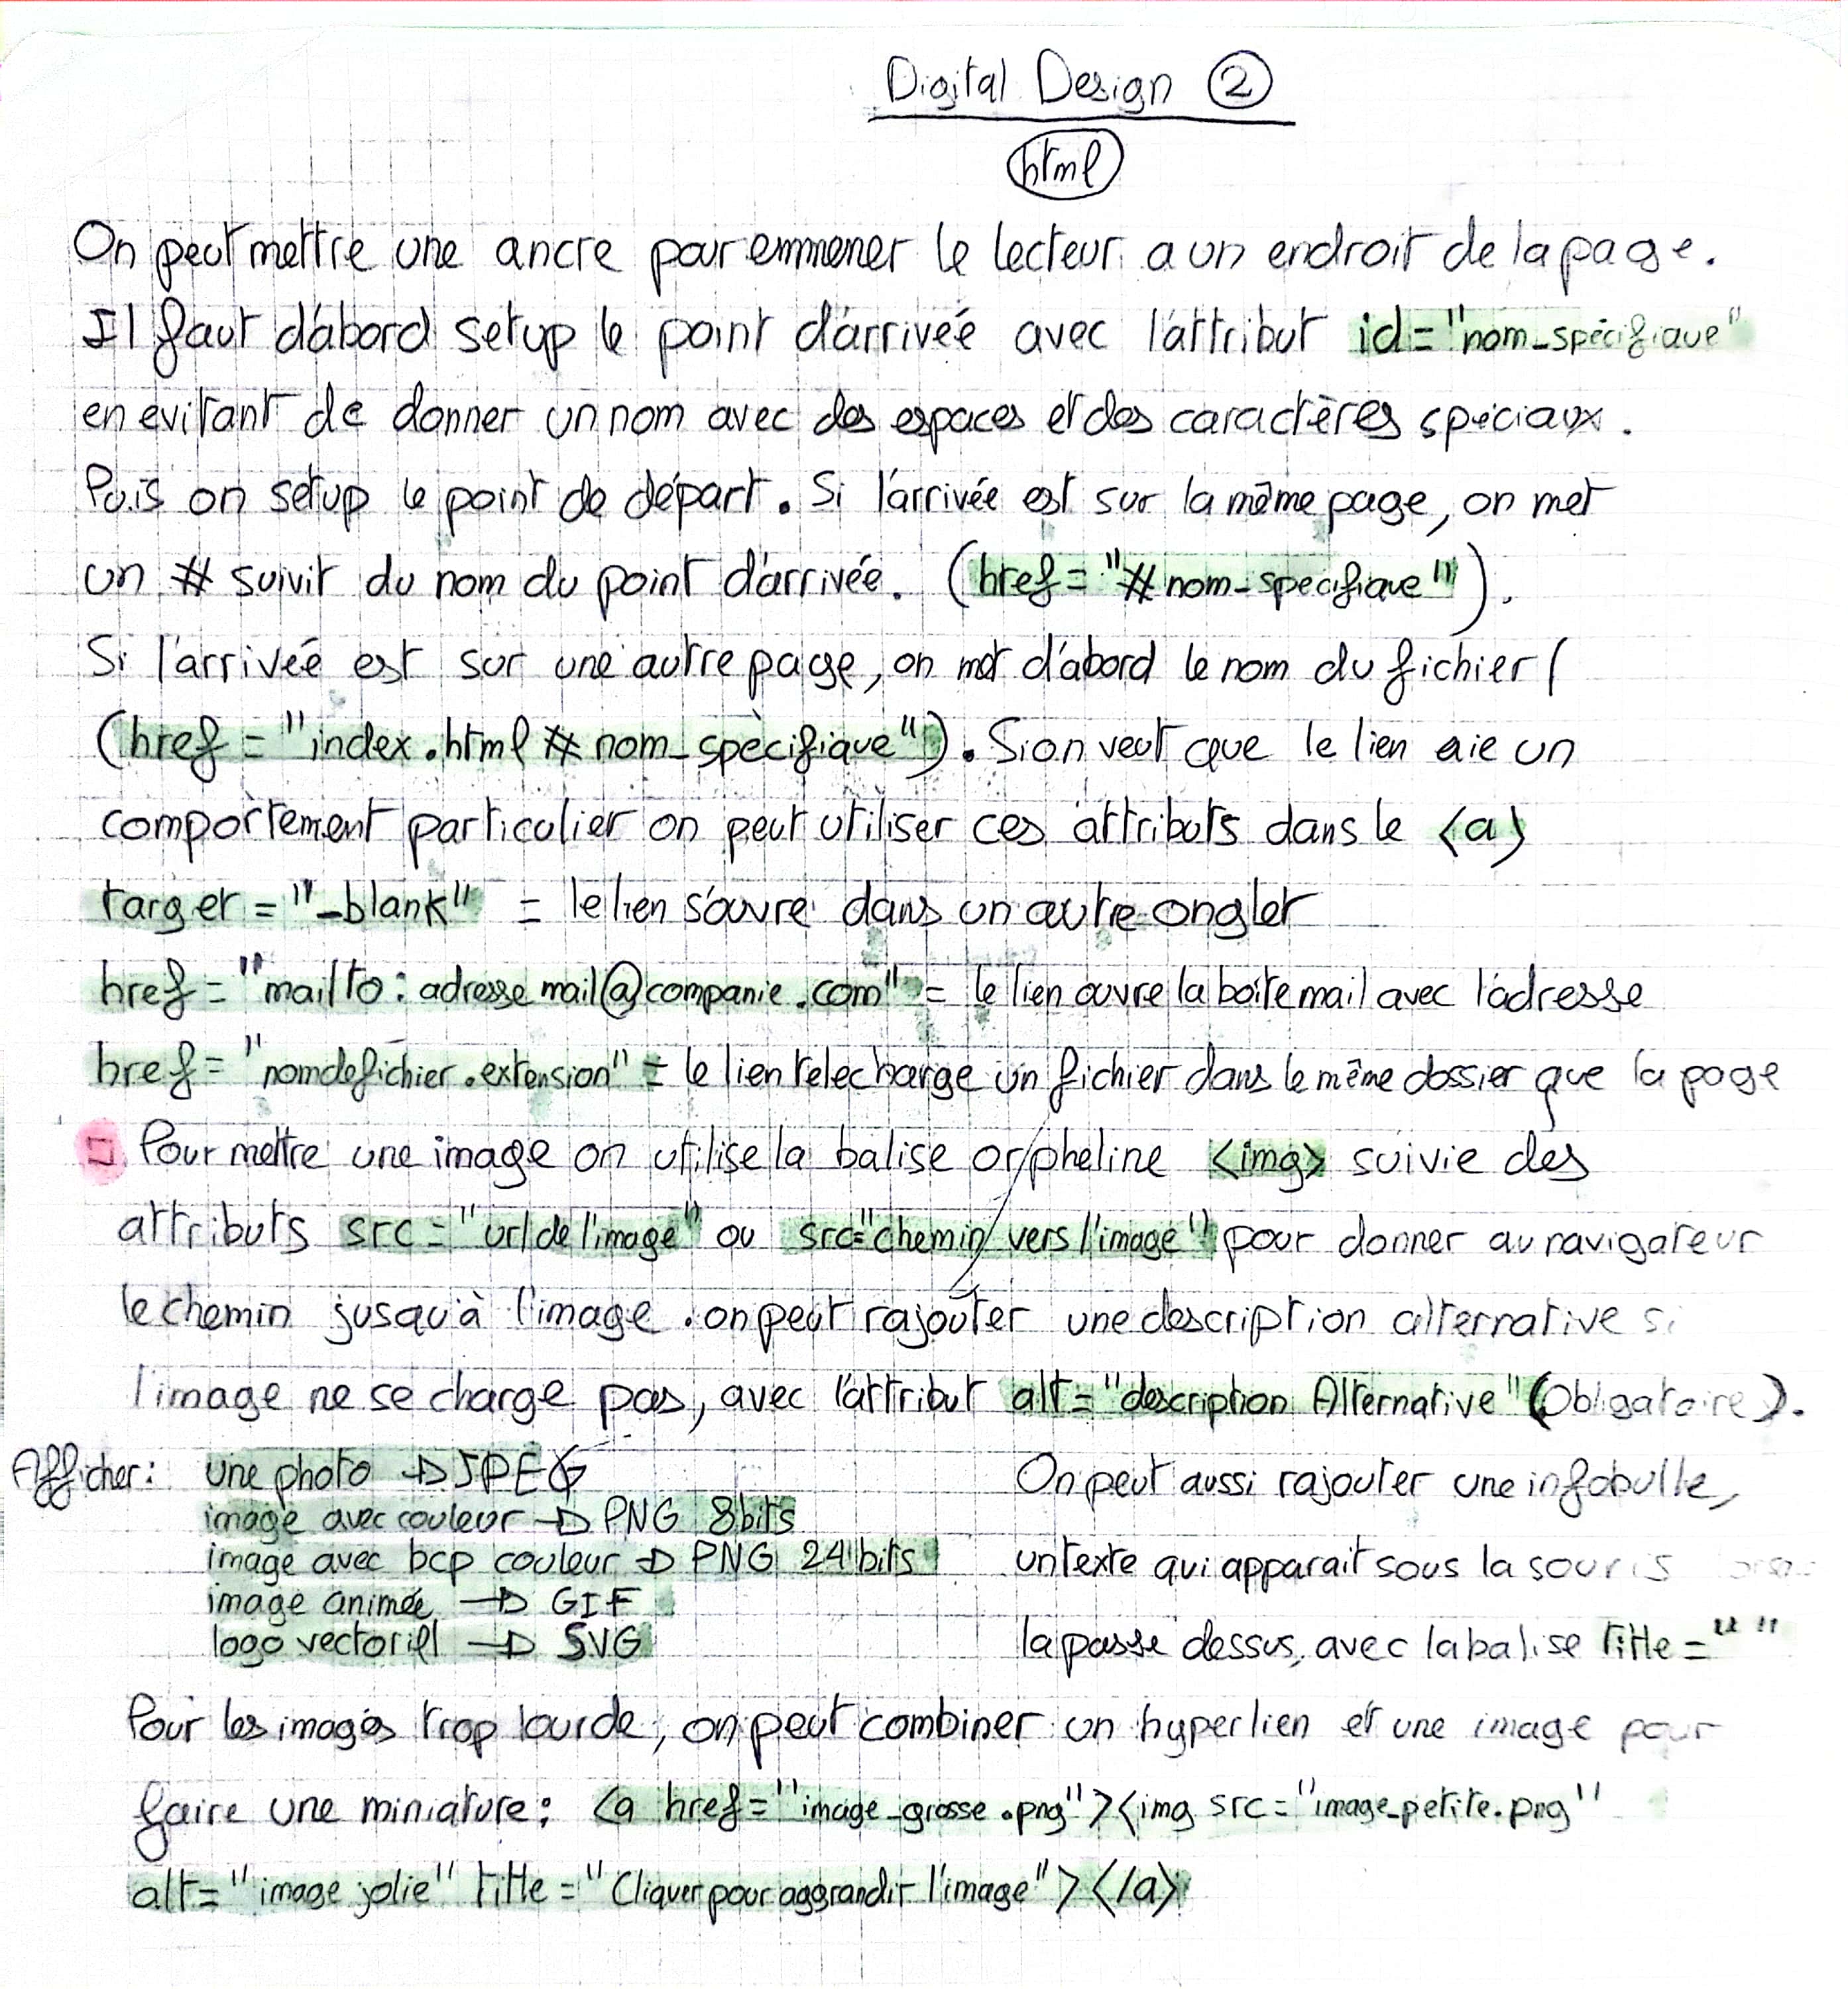 Digital Design 2
html
On peut mettre une ancre pour emmener le lecteur a un endroit de la page.
Il faut d'abord setup le point d'arrivée avec l'attribut id="nom_spécifique"
en evitant de donner un nom avec des espaces et des caractères spéciaux.
Puis on setup le point de départ. Si l'arrivée est sur la même page, on met
un # suivit du nom du point d'arrivée. (href="#nom-specifique").
Si l'arrivée est sur une autre page, on met d'abord le nom du fichier (
(href="index.html#nom_spècifique"). Si on veut que le lien aie un
comportement particulier on peut utiliser ces attributs dans le <a>
target="_blank" = le lien s'ouvre dans un autre onglet
href="mailto:adressemail@companie.com" = le lien ouvre la boîte mail avec l'adresse
href="nomdefichier.extension" = le lien telecharge un fichier dans le même dossier que la page
Pour mettre une image on utilise la balise orpheline <img> suivie des
attributs src="url de l'image" ou src="chemin vers l'image" pour donner au navigateur
le chemin jusqu'à l'image. on peut rajouter une description alternative si
l'image ne se charge pas, avec l'attribut alt="description Alternative" (Obligatoire).
Afficher: une photo → JPEG
image avec couleur → PNG 8bits
image avec bcp couleur → PNG 24 bits
image animée → GIF
logo vectoriel → SVG
On peut aussi rajouter une infobulle,
un texte qui apparait sous la souris
la passe dessus, avec la balise title=" "
Pour les images trop lourde, on peut combiner un hyperlien et une image pour
faire une miniature: <a href="image_grosse.png"><img src="image_petite.png"
alt="image jolie" title="Cliquer pour aggrandir l'image"></a>